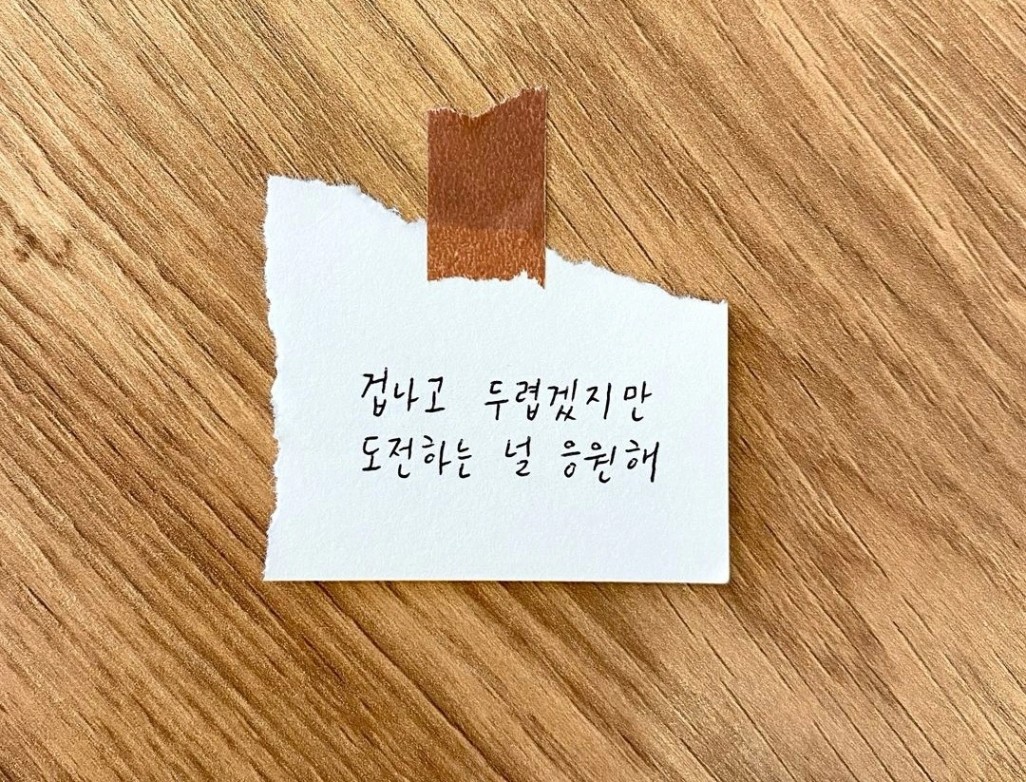 겁나고 두렵겠지만
도전하는 널 응원해